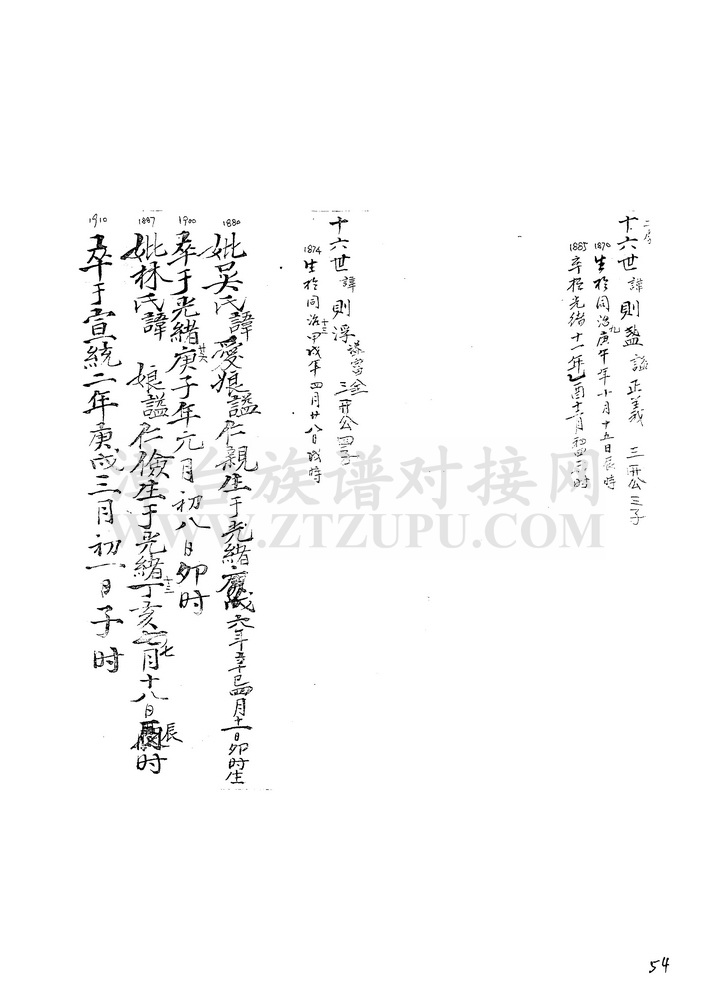 十六世 諱 則盤 諡 正義 三開公三子
1870
生於同治九庚午年十月十五日辰時
1885
卒於光緒十一年乙酉十二月初四 時
十六世 諱 則浮 諡 金 三開公四子
1874
生於同治十三甲戌年四月廿八日戌時
1880
妣吳氏諱愛娘諡仁親生于光緒 六年辛巳四月十一日卯時生
1900
卒于光緒廿六庚子年元月初八日卯时
1887
妣林氏諱 娘諡仁儉生于光緒十三丁亥七月十八日辰时
1910
卒于宣統二年庚戌三月初一日子时
渎台族谱对接网
WWW.ZTZUPU.COM
54